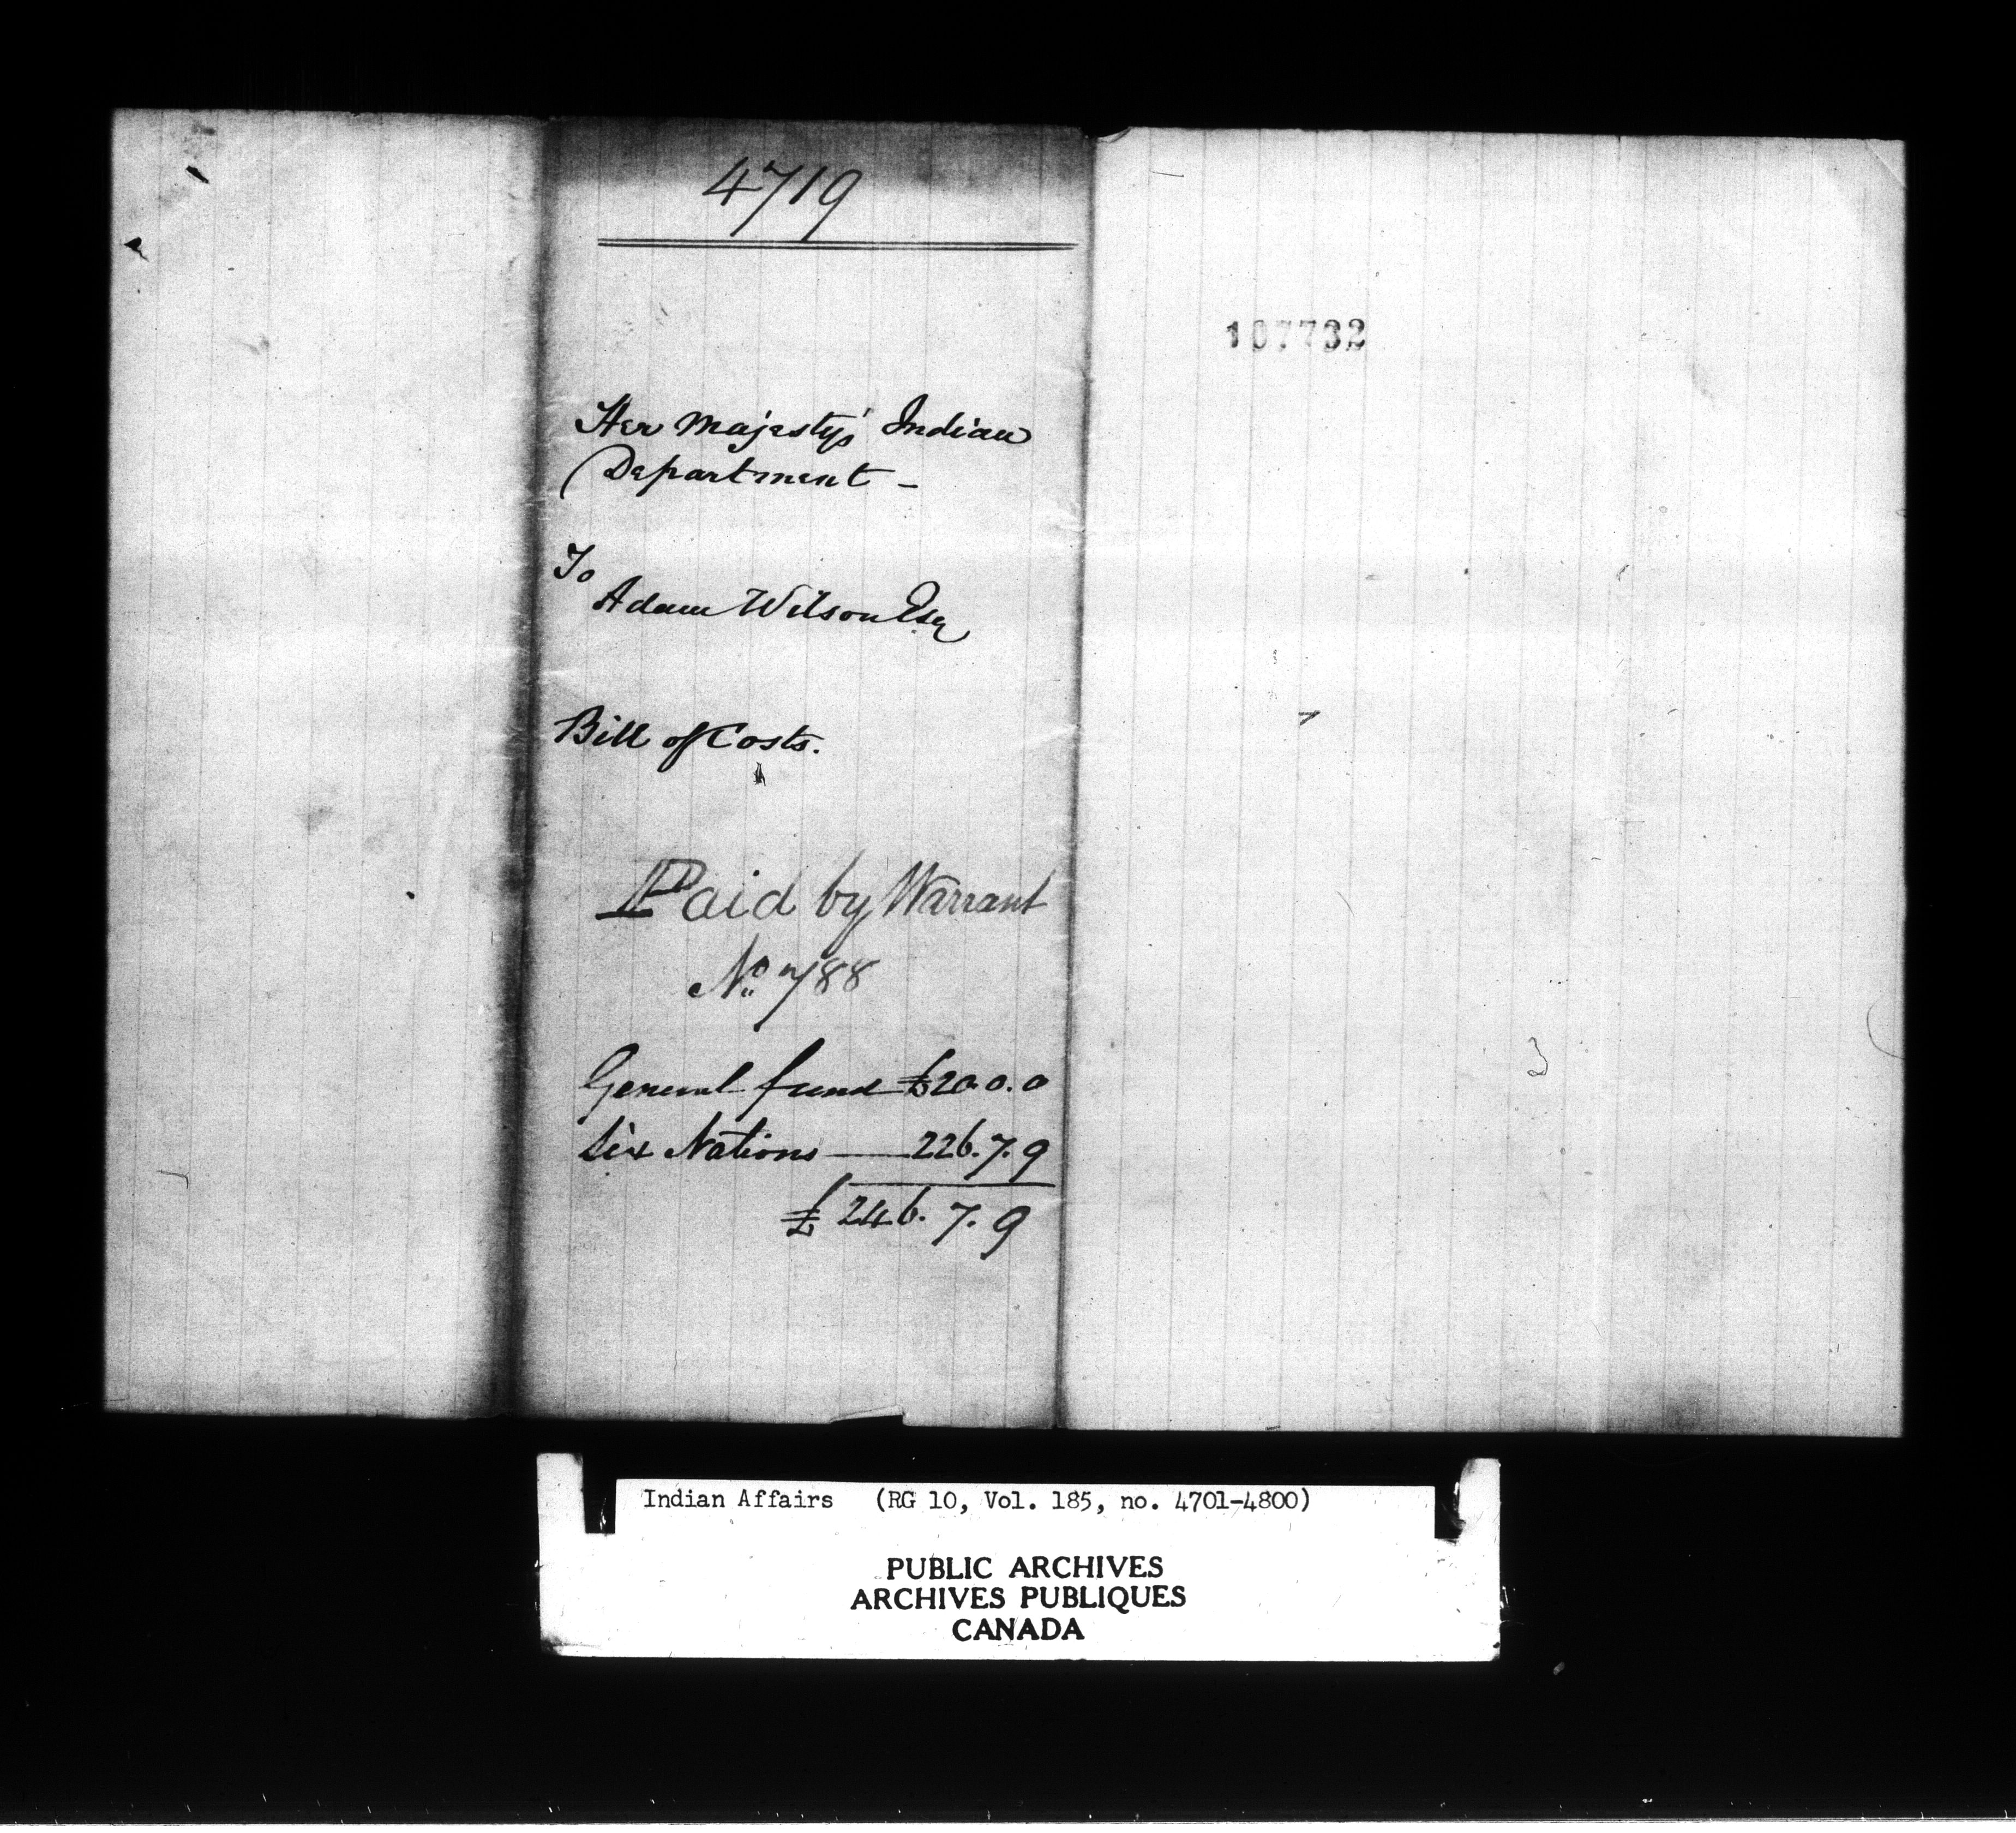 4719
107732
Her Majesty's Indian
Department -
To
Adam Wilson Esq
Bill of Costs.
Paid by Warrant
No. 788
General fund £20.0.0
Six Nations 226.7.9
£ 246.7.9
Indian Affairs (RG 10, Vol. 185, no. 4701-4800)
PUBLIC ARCHIVES
ARCHIVES PUBLIQUES
CANADA